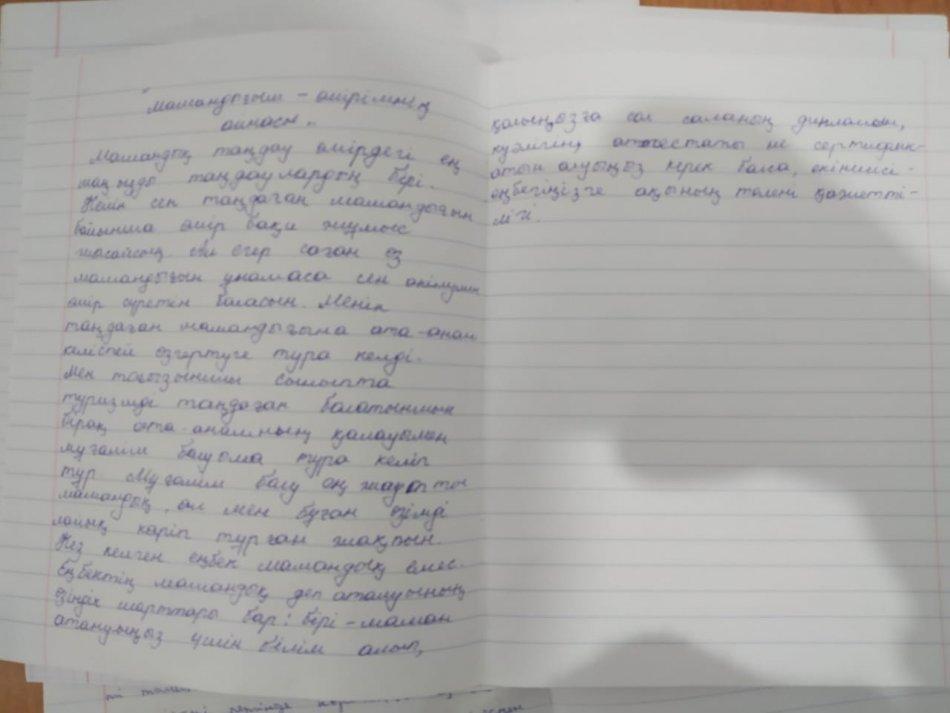 "Мамандығым - өмірімнің
айнасы"
Мамандық таңдау өмірдегі ең
маңызды таңдаулардың бірі.
Кейін сен таңдаған мамандығын
бойынша өмір бақи жұмыс
жасайсың. Ал егер саған өз
мамандығын ұнамаса сен өкінумен
өмір сүретін боласын. Менің
таңдаған мамандығыма ата-анам
келіспей өзгертуге тура келді.
Мен тоғызыншы сыныпта
туризмді таңдаған болатынмын
бірақ ата-анамның қалауымен
мұғалім болуыма тура келіп
тұр. Мұғалім болу ең жауапты
мамандық, ал мен бұған өзімді
лайық көріп тұрған жақпын.
Кез келген еңбек мамандық емес.
Еңбектің мамандық деп аталуының
өзіндік шарттары бар: бірі - маман
атануыңыз үшін білім алып,
қолыңызға сол саланың дипломын,
куәлігін, аттестаты не сертифик-
атын алуыңыз керек болса, екіншісі -
еңбегіңізге ақының төлену қажетті-
лігі.